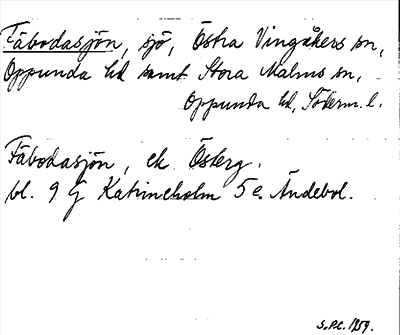 Fäbodasjön, sjö, Östra Vingåkers sn,
Oppunda hd samt Stora Malms sn,
Oppunda hd, Söderm. l.
Fäbodasjön, ek Österg.
bl. 9 G Katrineholm 5 e. Ändebol.
S.P.C. 1959.